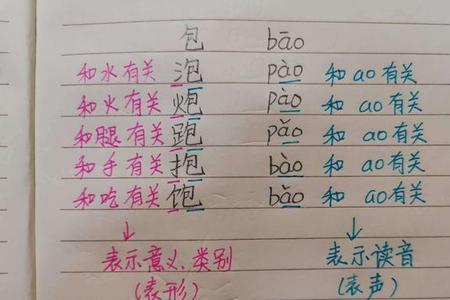 包 bāo
和水有关 泡 pào 和 ao 有关
和火有关 炮 pào 和 ao 有关
和腿有关 跑 pǎo 和 ao 有关
和手有关 抱 bào 和 ao 有关
和吃有关 饱 bǎo 和 ao 有关
↓ ↓
表示意义、类别 表示读音
(表形) (表声)